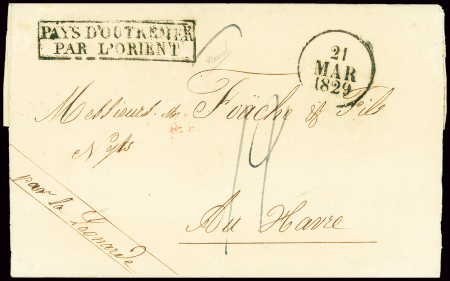 PAYS D'OUTREMER
PAR L'ORIENT
21
MAR
1829
Messieurs Foäche & Fils
N gts
Au Havre
par la Leonarde